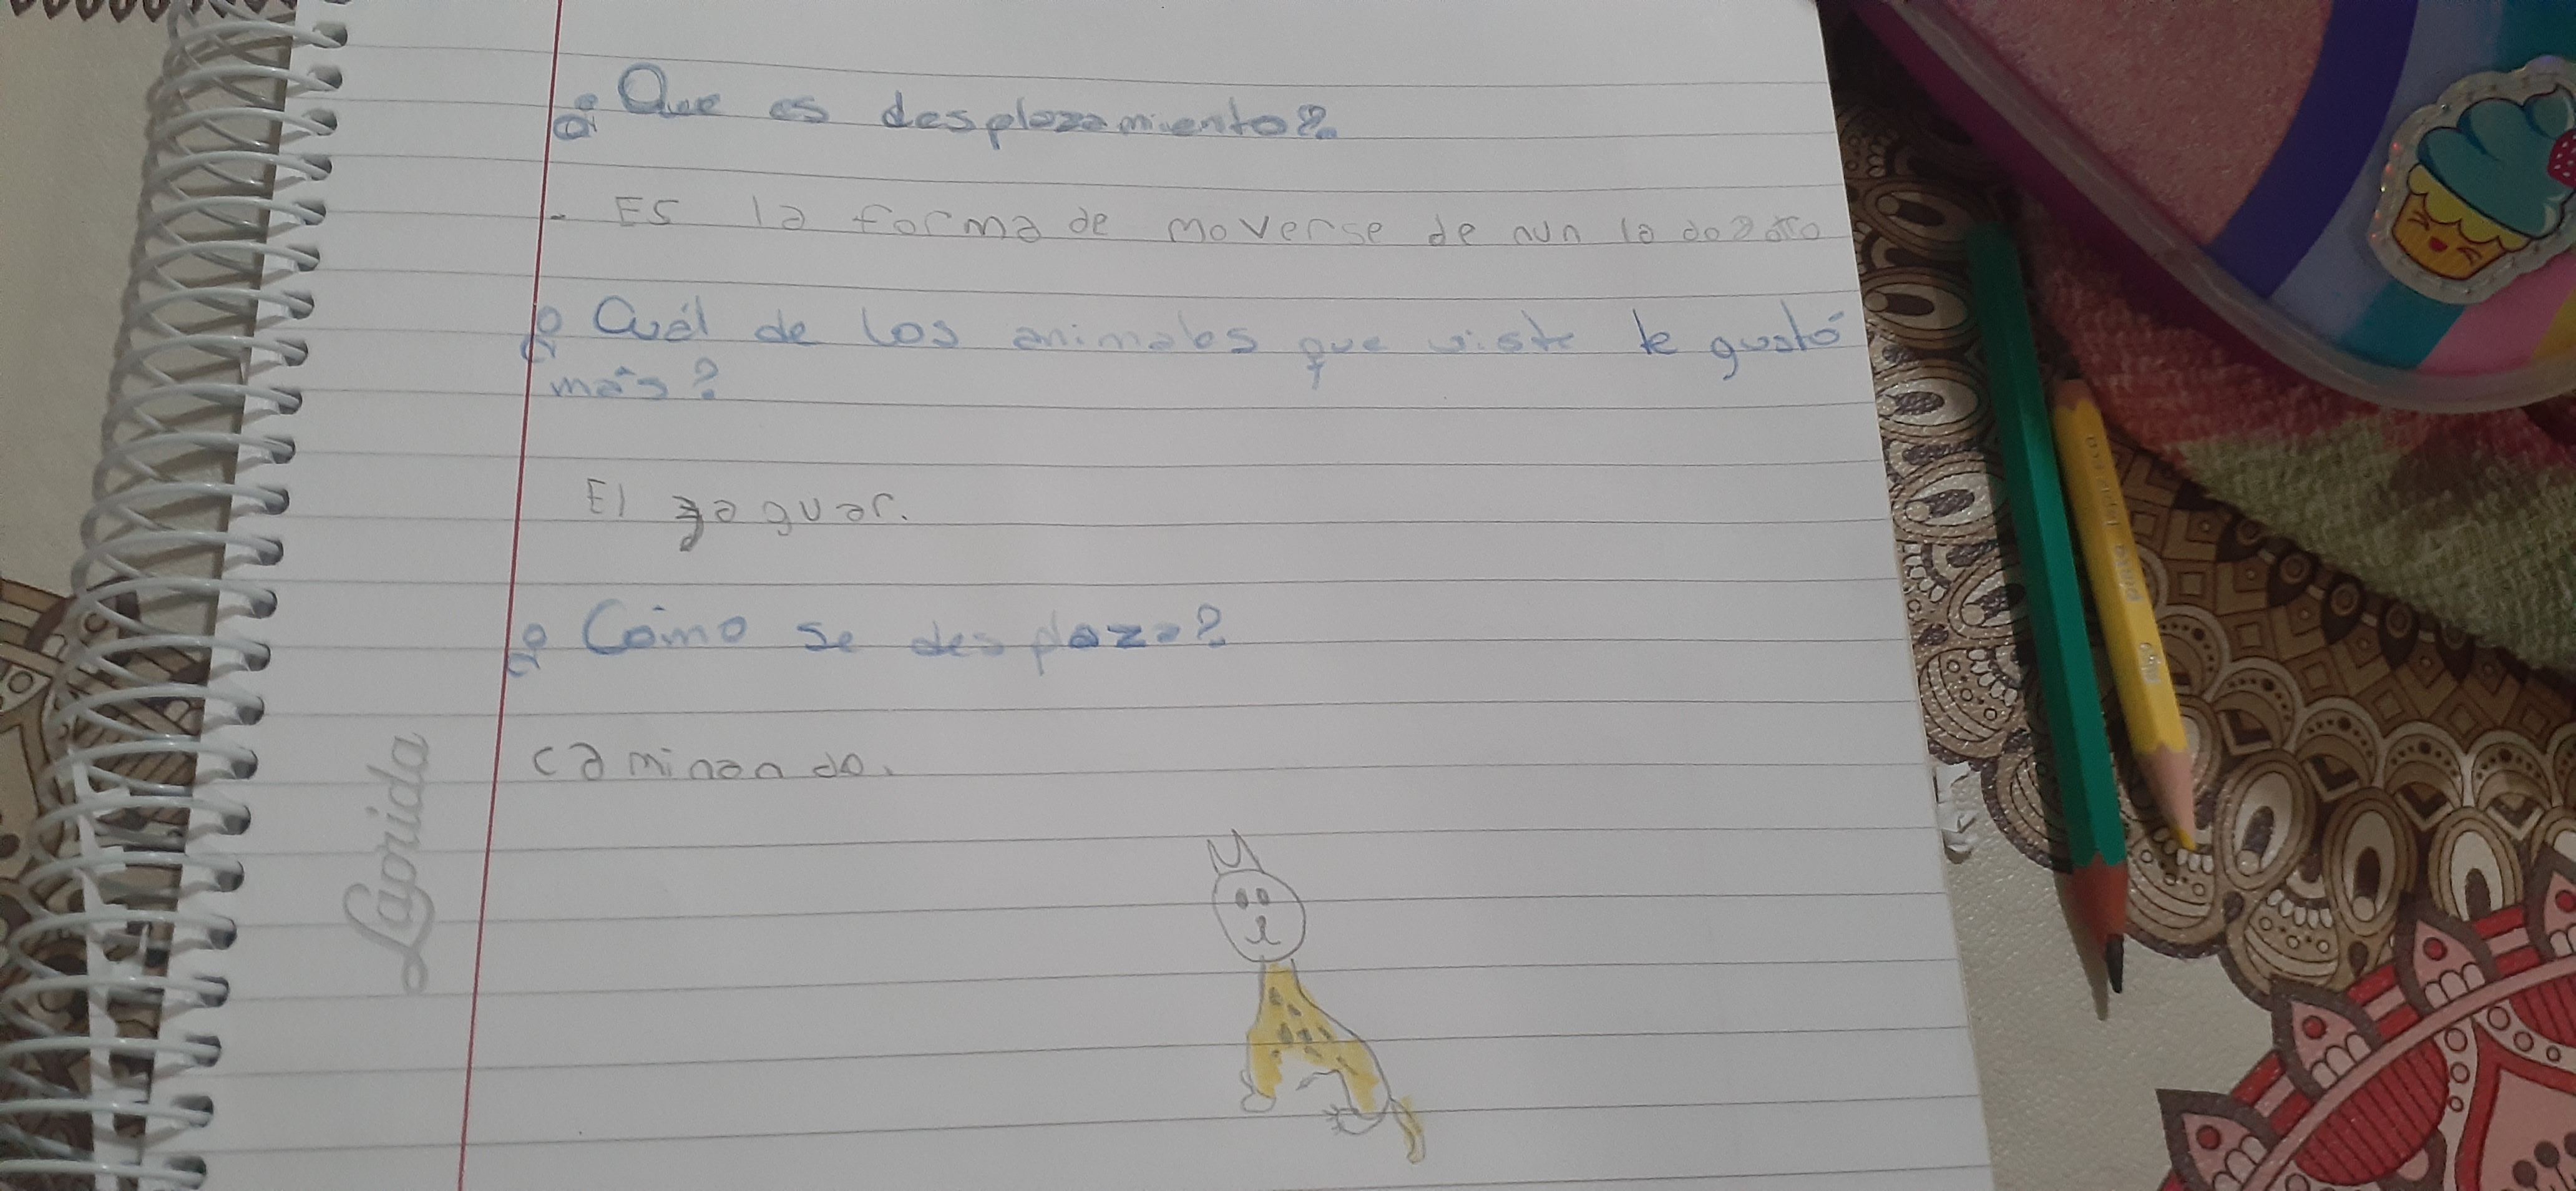 ¿Que es desplazamiento?
- Es la forma de moverse de nun lado a otro
¿Cuál de los animales que viste te gustó
más?
El jaguar.
¿Cómo se desplaza?
caminando.
Laprida